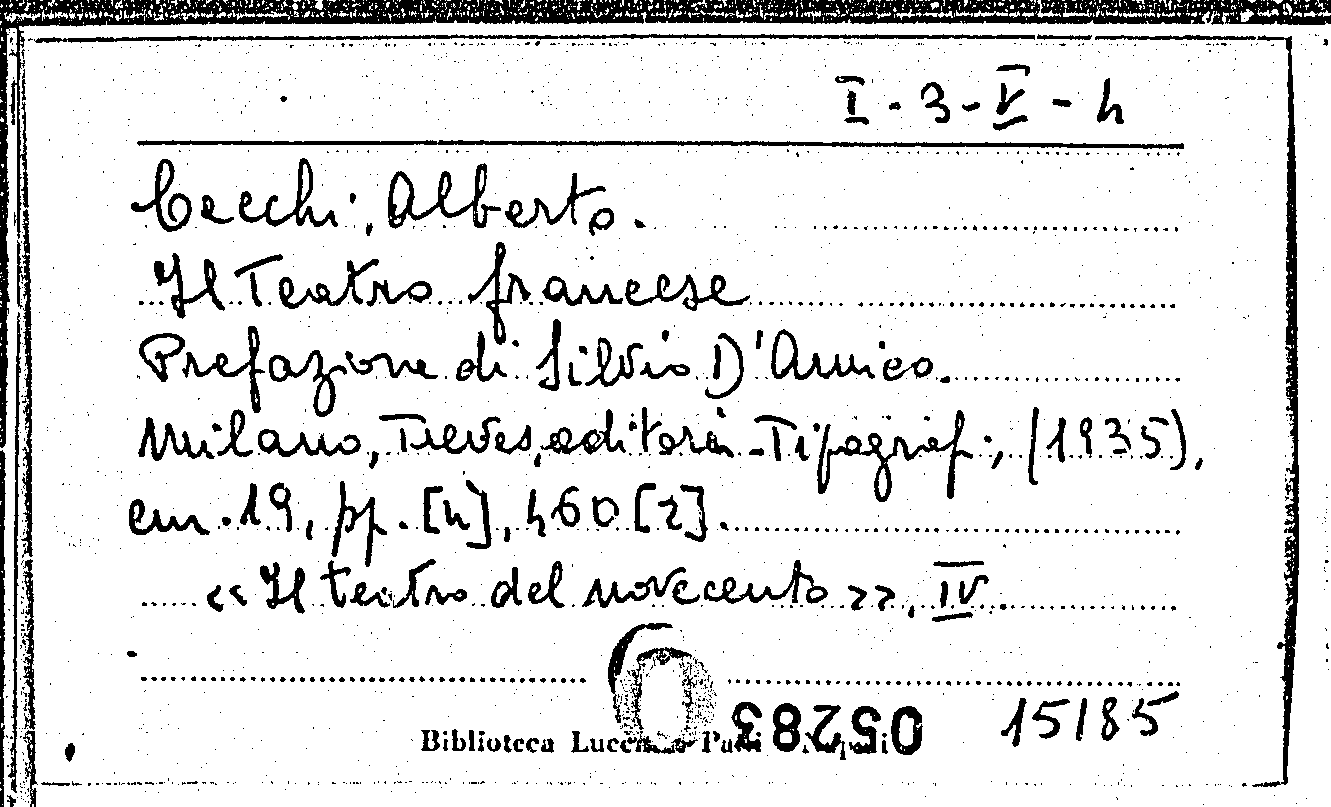 I - 3 - V - 4
Cecchi, Alberto.
Il Teatro francese
Prefazione di Silvio D'Amico.
Milano, Treves, editori-Tipograf., (1935),
cm. 19, pp. [4], 460 [2].
<<Il teatro del novecento>>, IV.
05283
15185
Biblioteca